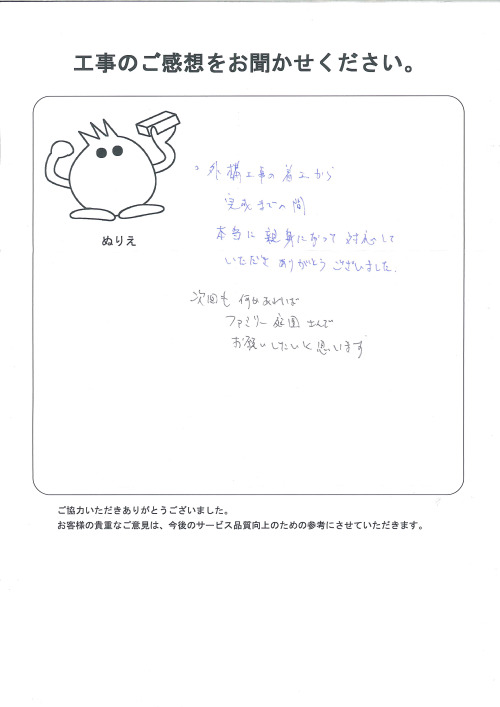 工事のご感想をお聞かせください。
外構工事の着工から
完成までの間
本当に親身になって対応して
いただき ありがとうございました.
ぬりえ
次回も 何かあれば
ファミリー庭園さんで
お願いしたいと思います
ご協力いただきありがとうございました。
お客様の貴重なご意見は、今後のサービス品質向上のための参考にさせていただきます。